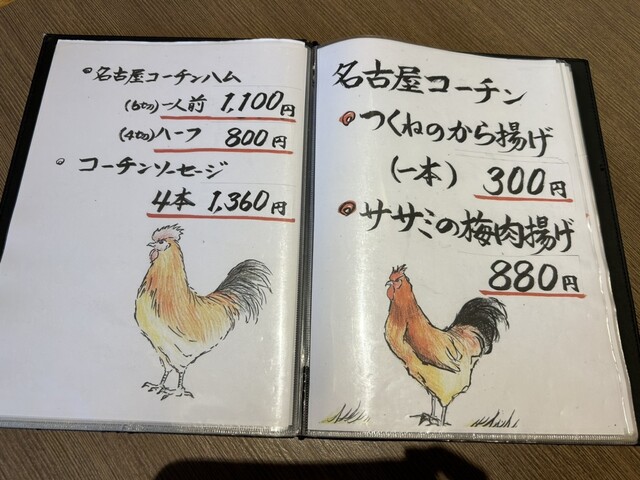 名古屋コーチンハム
(6切)一人前 1,100円
(4切)ハーフ 800円
コーチンソーセージ
4本 1,360円
名古屋コーチン
つくねのから揚げ
(一本) 300円
ササミの梅肉揚げ
880円